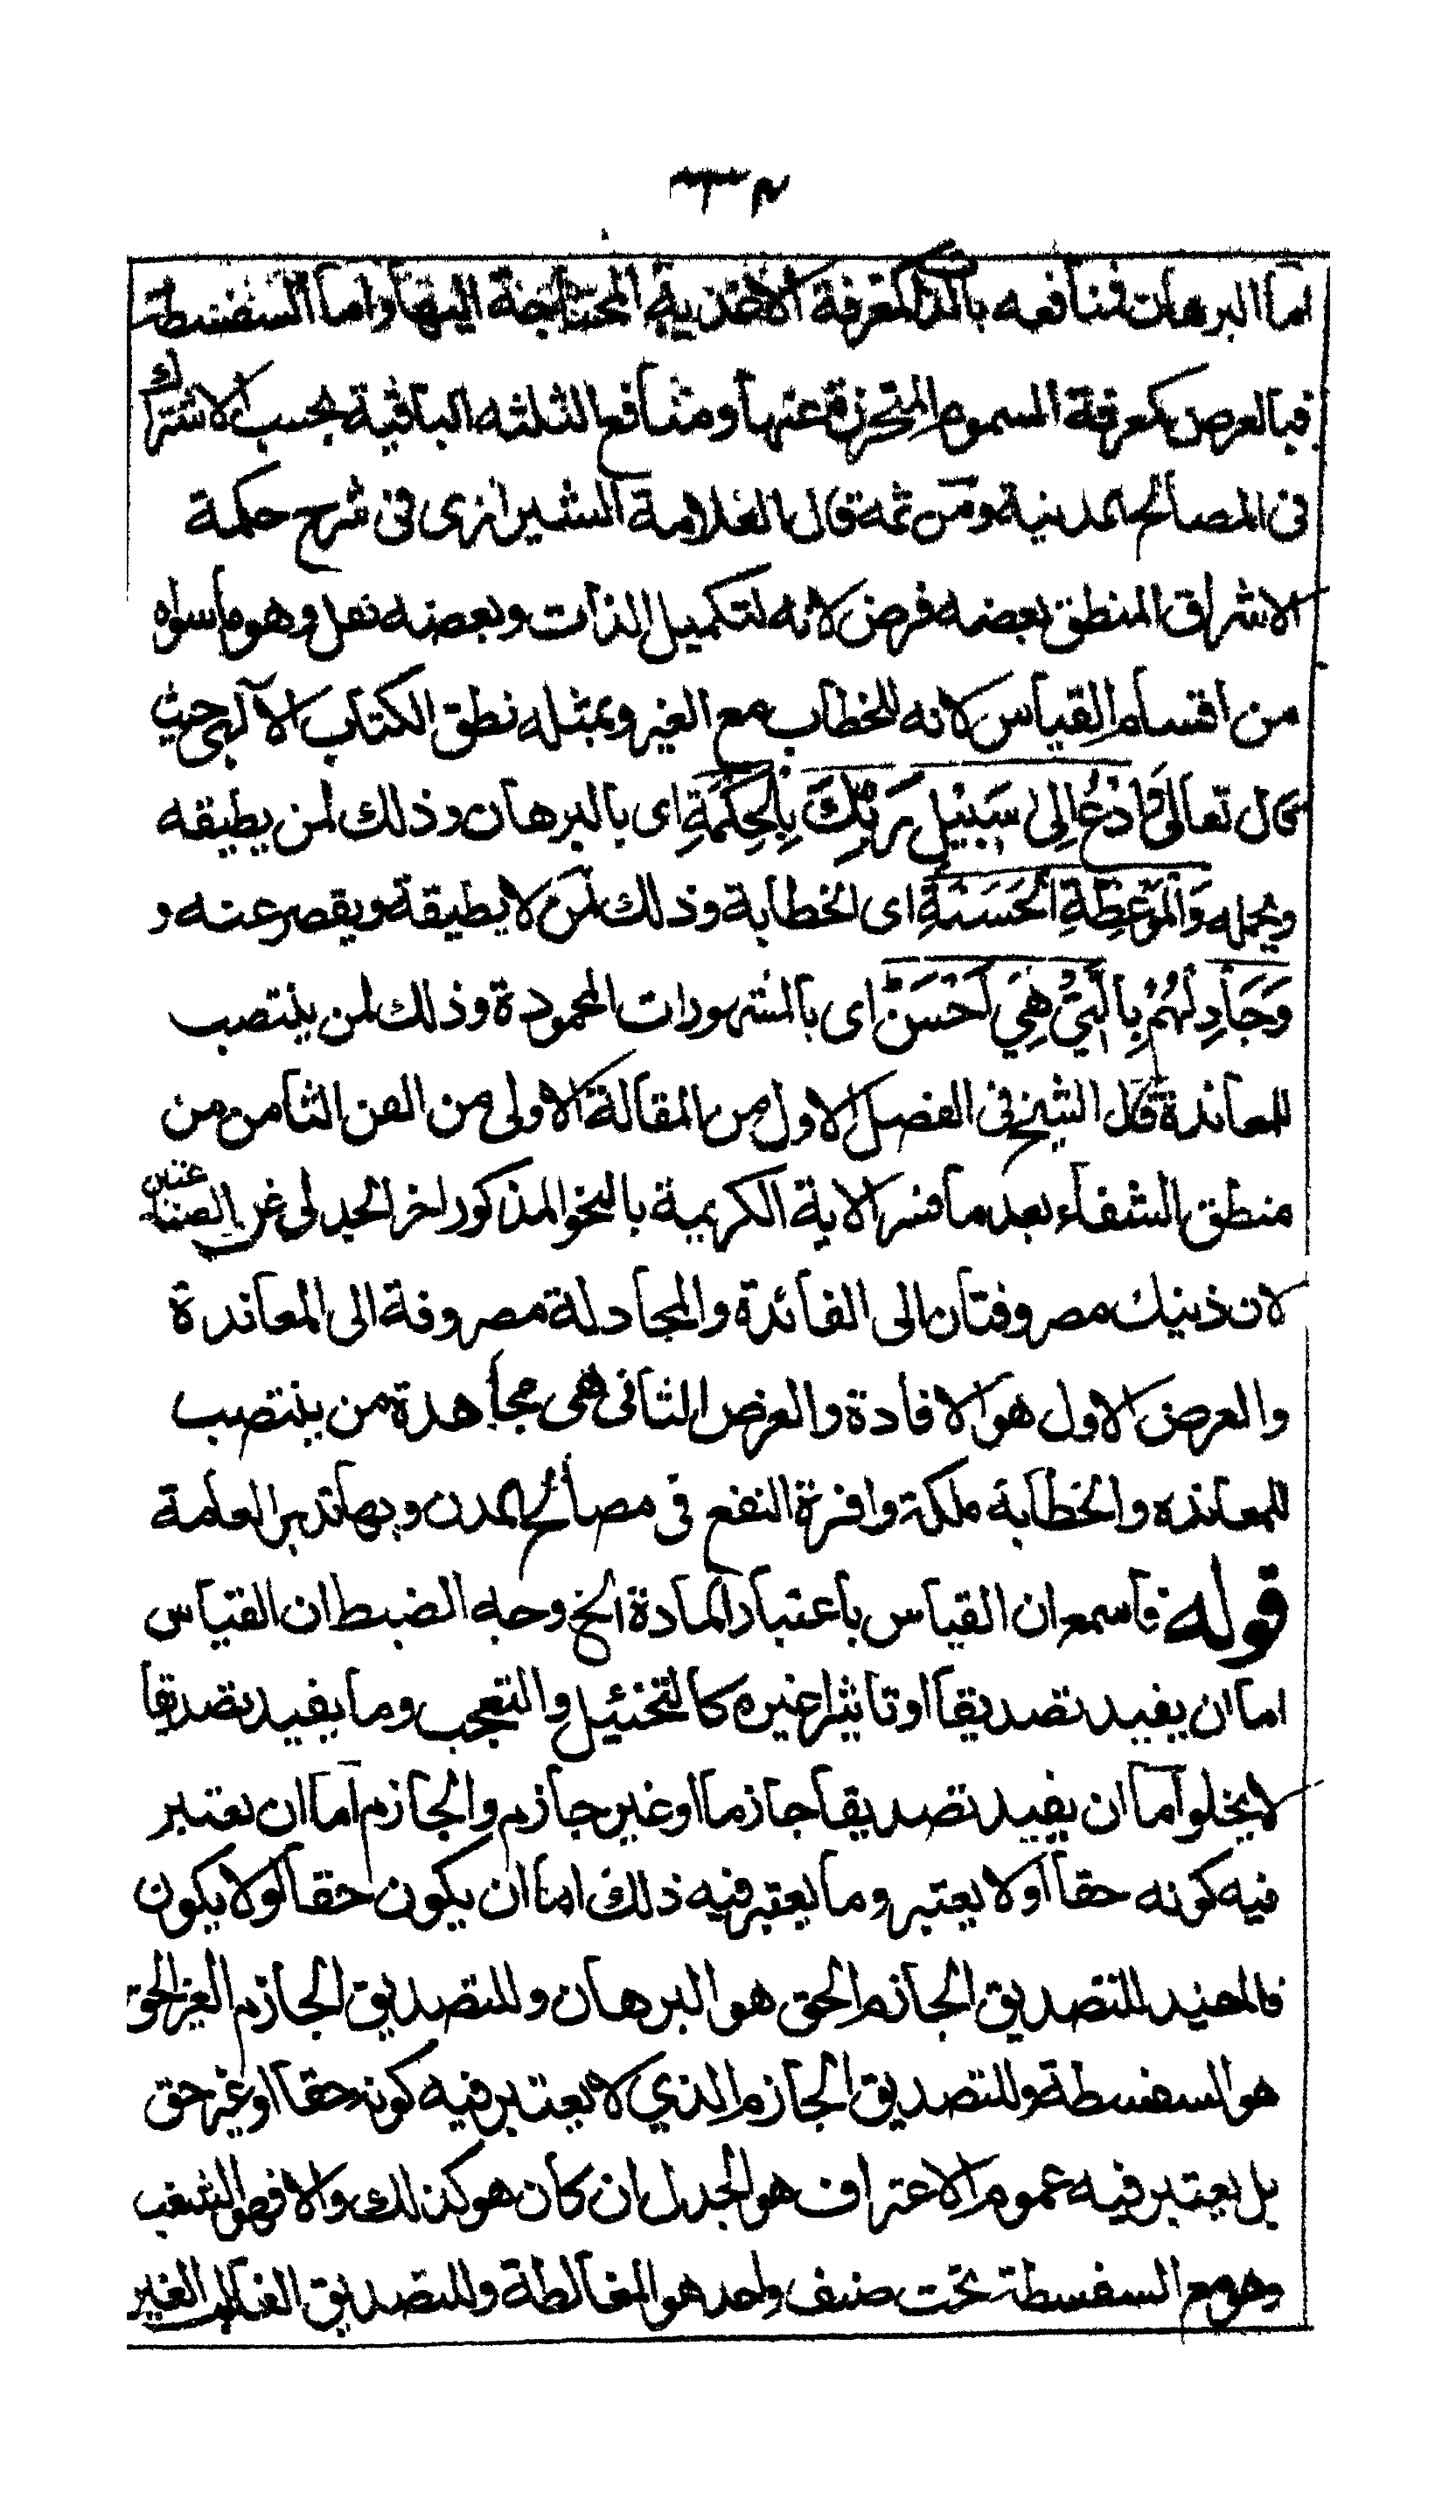 اما البرهان فمنافعه بالذات كمعرفة الاغذية المحتاجة اليها واما السفسطة
فبالعرض كمعرفة السموم المتحرزة عنها ومنافع الثلثه الباقية بحسب الاشتراك
فى المصالح المدنية ومن ثمه قال العلامة الشيرازى فى شرح حكمة
الاشراق المنطق بعضه فرض لانه لتكميل الذات وبعضه نفل وهو ما سواه
من اقسام القياس لانه للخطاب مع الغير وبمثله نطق الكتاب الآلهى حيث
قال تعالى وَادْعُ اِلى سَبِيْلِ رَبِّكَ بِالْحِكْمَةِ اى بالبرهان وذلك لمن يطيقه
ويحمله وَالْمَوْعِظَةِ الْحَسَنَةِ اى الخطابة وذلك لمن لا يطيقة ويقصر عنه و
وَجَادِلْهُمْ بِالَّتِيْ هِيَ اَحْسَنُ اى بالمشهورات المحمودة وذلك لمن ينتصب
للمعاندة قال الشيخ فى الفصل الاول من المقالة الاولى من الفن الثامن من
منطق الشفاء بعد ما فسر الاية الكريمة بالنحو المذكور اخر الجدل عن الصناعتين
لان ذينك مصروفتان الى الفائدة والمجادلة مصروفة الى المعاندة
والعرض الاول هو الافادة والغرض الثانى هى مجاهدة من ينتصب
للمعانده والخطابة ملكة وافرة النفع فى مصالح المدن وبها تدبر العامة
قوله فاسمع ان القياس باعتبار المادة الخ وجه الضبط ان القياس
اما ان يفيد تصديقا او تاثيرا غيره كالتخئيل والتعجب وما يفيد تصديقا
لا يخلو اما ان يفيد تصديقا جازما او غير جازم والجازم اما ان يعتبر
فيه كونه حقا او لا يعتبر وما يعتبر فيه ذلك اما ان يكون حقا او لا يكون
فالمفيد للتصديق الجازم الحق هو البرهان وللتصديق الجازم الغير الحق
هو السفسطة وللتصديق الجازم الذي لا يعتبر فيه كونه حقا او غير حق
بل يعتبر فيه عموم الاعتراف هو الجدل ان كان هو كذلك والا فهو الشغب
وهو مع السفسطة تحت صنف واحد هو المغالطة وللتصديق الغالب الغير